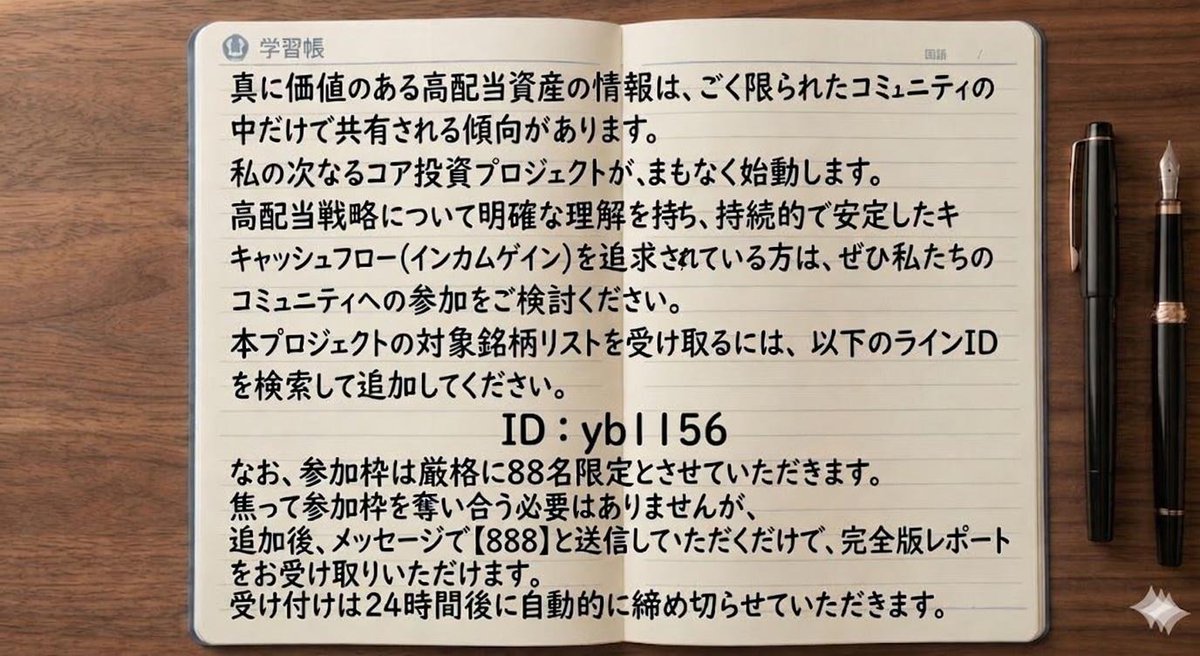 学習帳
国語 /
真に価値のある高配当資産の情報は、ごく限られたコミュニティの
中だけで共有される傾向があります。
私の次なるコア投資プロジェクトが、まもなく始動します。
高配当戦略について明確な理解を持ち、持続的で安定したキ
キャッシュフロー(インカムゲイン)を追求されている方は、ぜひ私たちの
コミュニティへの参加をご検討ください。
本プロジェクトの対象銘柄リストを受け取るには、以下のラインID
を検索して追加してください。
ID：yb1156
なお、参加枠は厳格に88名限定とさせていただきます。
焦って参加枠を奪い合う必要はありませんが、
追加後、メッセージで【888】と送信していただくだけで、完全版レポート
をお受け取りいただけます。
受け付けは24時間後に自動的に締め切らせていただきます。